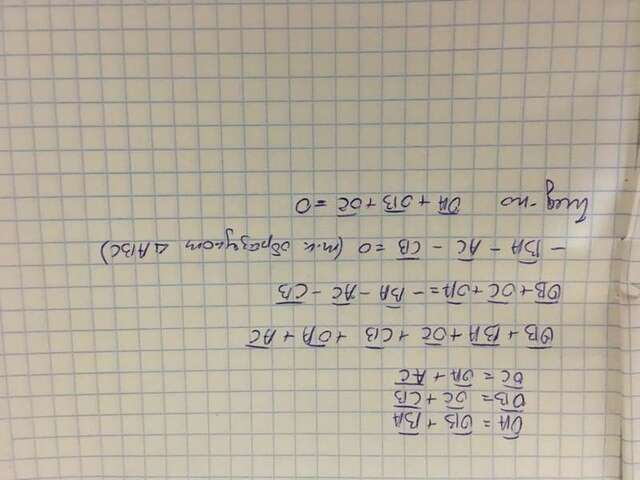 O̅A̅ = O̅B̅ + B̅A̅
O̅B̅ = O̅C̅ + C̅B̅
O̅C̅ = O̅A̅ + A̅C̅
O̅B̅ + B̅A̅ + O̅C̅ + C̅B̅ + O̅A̅ + A̅C̅
O̅B̅ + O̅C̅ + O̅A̅ = - B̅A̅ - A̅C̅ - C̅B̅
- B̅A̅ - A̅C̅ - C̅B̅ = 0 (т.к. образуют △ABC)
След-но O̅A̅ + O̅B̅ + O̅C̅ = 0